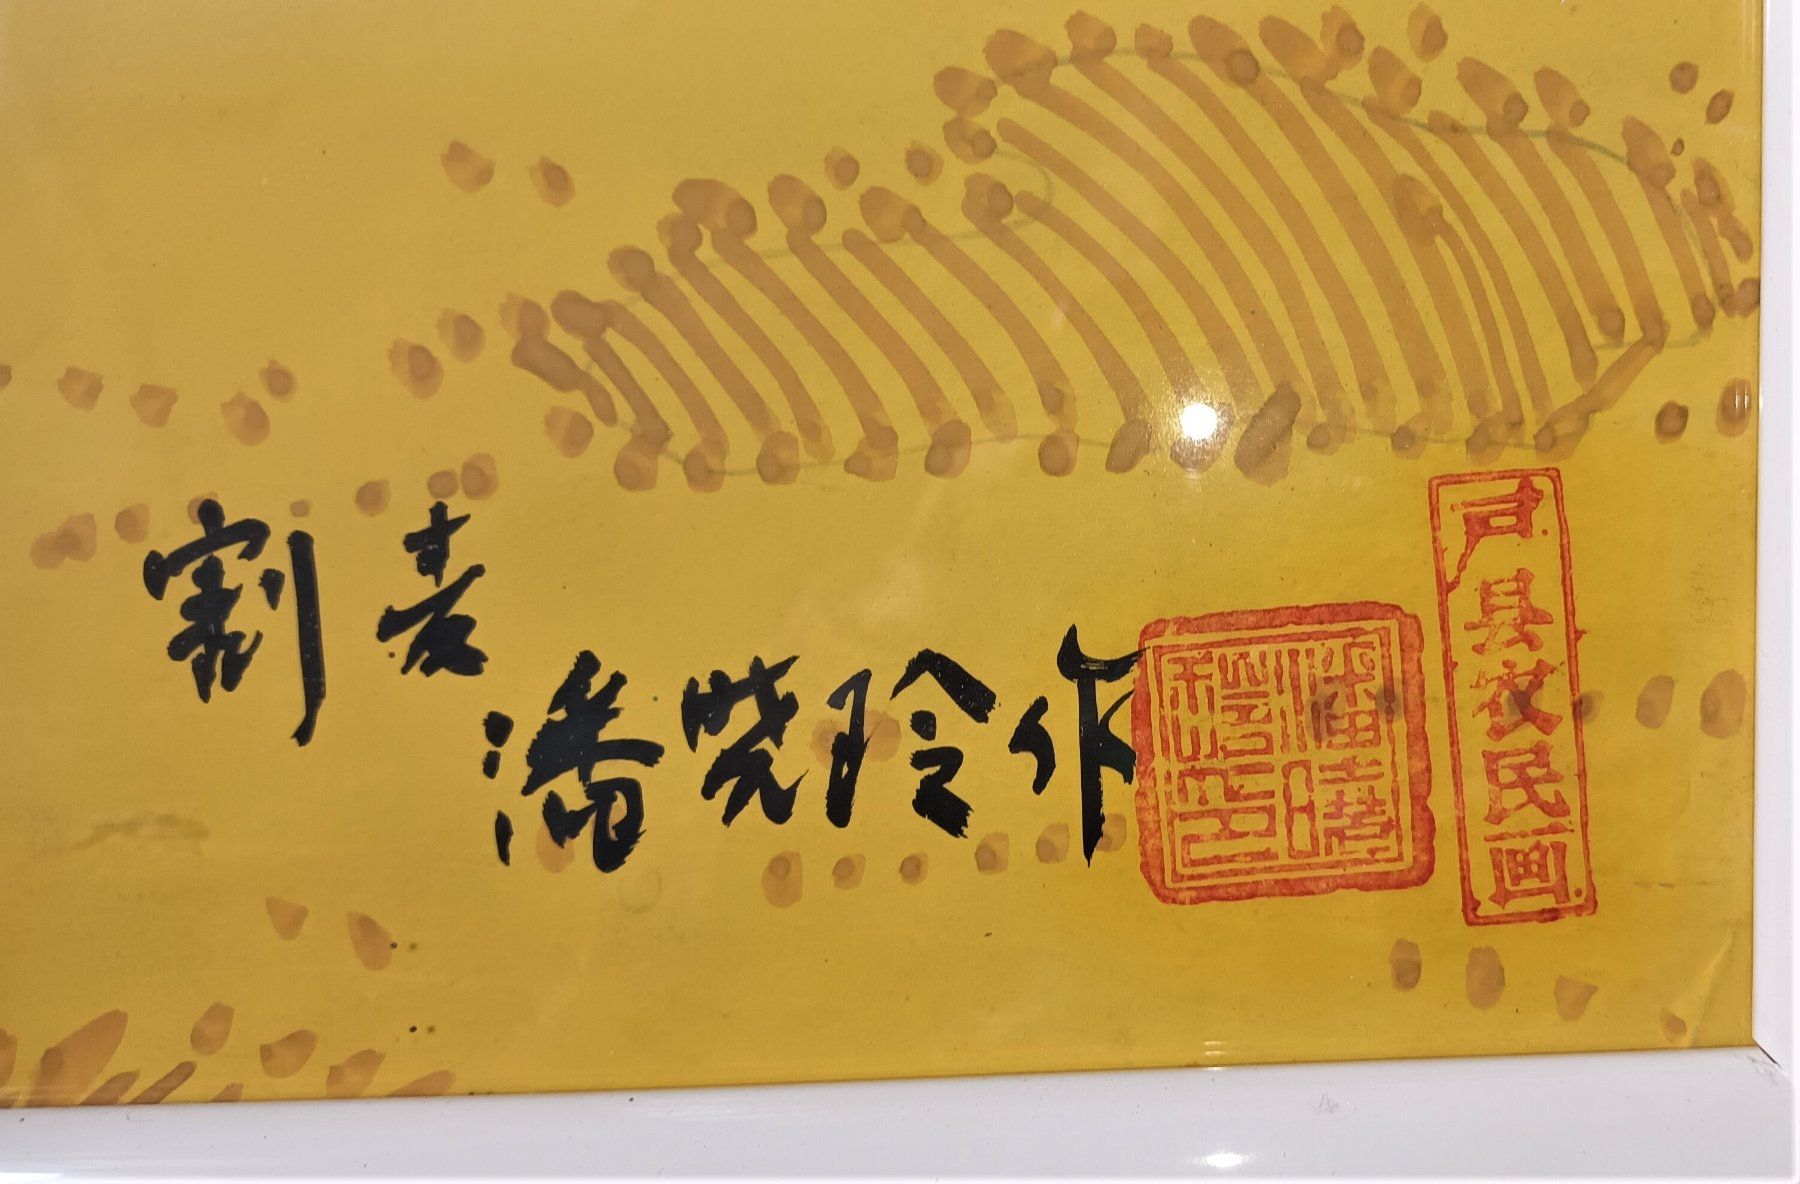 割麦
潘晓玲作
户县农民画